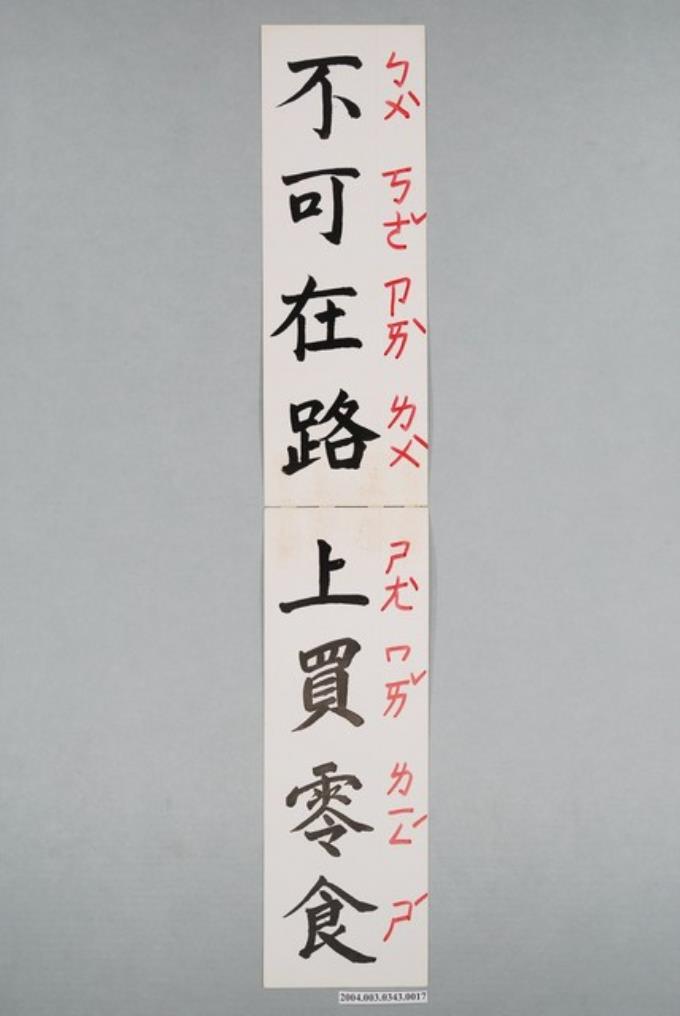 不可在路上買零食
ㄅㄨˋ ㄎㄜˇ ㄗㄞˋ ㄌㄨˋ ㄕㄤˋ ㄇㄞˇ ㄌㄧㄥˊ ㄕˊ
2004.003.0343.0017